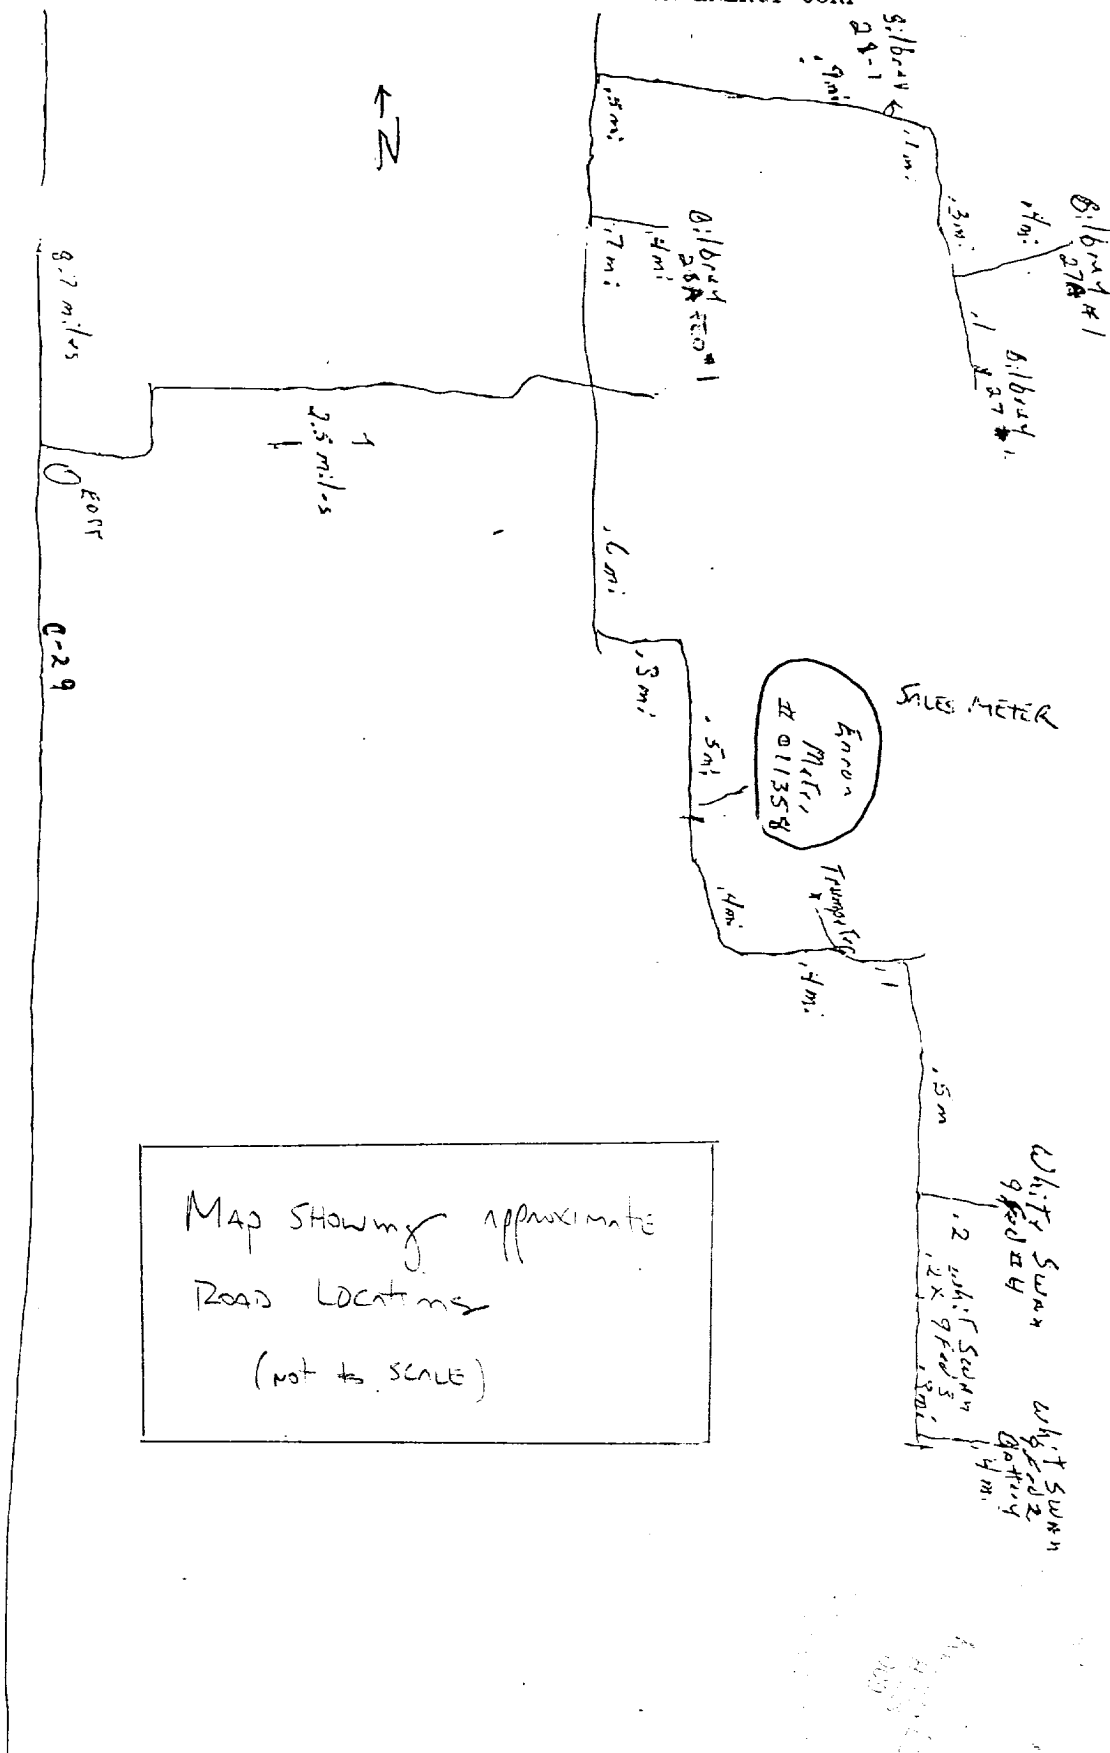 Bilbrey
28-1
.9mi
.1mi
.3mi
.4mi
Bilbrey #1
27A
.1
Bilbrey
27 #1
←N
.5mi
.7mi
.4mi
Bilbrey
28A FED #1
8.7 miles
2.5 miles
EOTT
C-29
.6mi
.3mi
.5mi
SALES METER
Enron
Meter
# 011358
.4mi
.4mi
.1
.5m
White Swan
9 Fed #4
.2
Whit Swan
9 Fed 3
.2
.3mi
Whit Swan
9 Fed 2
Battery
.4mi
MAP SHOWING APPROXIMATE
ROAD LOCATIONS
(NOT to SCALE)